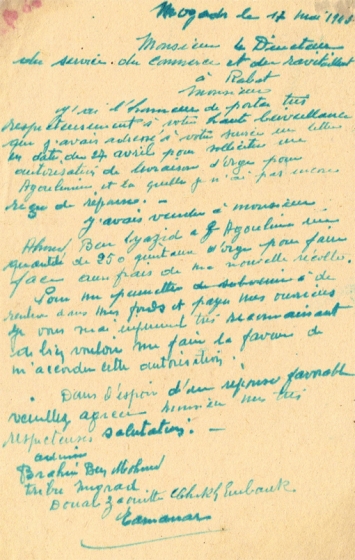 Mogador le 17 mai 194
Monsieur le Directeur
du service du commerce et du ravitaillement
à Rabat
Monsieur
J'ai l'honneur de porter très
respectueusement à votre haute bienveillance
que j'avais adressé à votre service une lettre
en date du 27 avril pour solliciter une
autorisation de livraison d'orge pour
Agoulmim et la quelle je n'ai pas encore
reçu de réponse. -
J'avais vendu à monsieur
Ahmed Ben Lyazid à Agoulmim une
quantité de 250 quintaux d'orge pour faire
face aux frais de ma nouvelle récolte.
Pour me permettre de subvenir à de
rentrer dans mes fonds et payer mes ouvriers
je vous serai infiniment très reconnaissant
de bien vouloir me faire la faveur de
m'accorder cette autorisation.
Dans l'espoir d'une réponse favorable
veuillez agréer monsieur mes très
respectueuses salutations. -
Brahim Ben Mohmd
tribu
Douar Zaouitte Embark
Tamanar